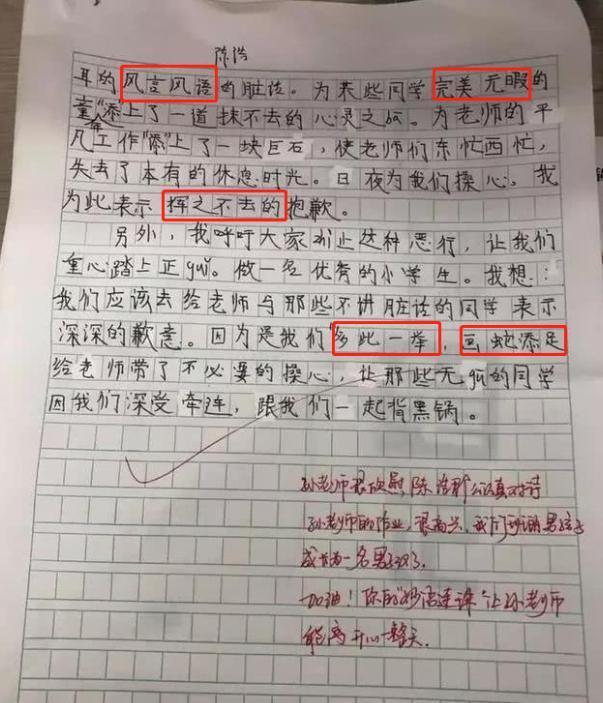 陈浩
耳的风言风语的脏话。为某些同学完美无暇的
童年"添"上了一道抹不去的心灵之坎。为老师的平
凡工作"添"上了一块巨石，使老师们东忙西忙，
失去了本有的休息时光。日夜为我们操心，我
为此表示挥之不去的抱歉。
另外，我呼吁大家制止这种恶行，让我们
重心踏上正guǐ。做一名优秀的小学生。我想：
我们应该去给老师与那些不讲脏话的同学表示
深深的歉意。因为是我们"多此一举，画蛇添足
给老师带了不必要的操心，让那些无gū的同学
因我们深受牵连，跟我们一起背黑锅。
孙老师很欣慰，陈浩那么认真对待
孙老师的作业，很高兴，我们班的男孩子
成长为一名男子汉了。
加油！你的"妙语连珠"让孙老师
能高开心一整天。